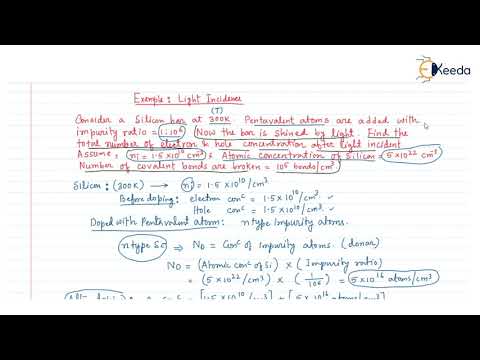 EKeeda
Example: Light Incidence
(T)
Consider a Silicon bar at 300K. Pentavalent atoms are added with
impurity ratio = 1:10⁶. Now the bar is shined by light. Find the
total number of electron & hole concentration after light incident
Assume, ni = 1.5×10¹⁰/cm³ & Atomic concentration of Silicon = 5×10²² cm³
Number of covalent bonds are broken = 10⁵ bonds/cm³
Silicon: (300K) → ni = 1.5×10¹⁰/cm³
Before doping: electron conᶜ = 1.5×10¹⁰/cm³ ✓
Hole conᶜ = 1.5×10¹⁰/cm³ ✓
Doped with Pentavalent atom: n type Impurity atoms.
n type SC ⇒ ND = Conᶜ of Impurity atoms. (donar)
ND = (Atomic conᶜ of Si) × (Impurity ratio)
= (5×10²²/cm³) × (1/10⁶) = 5×10¹⁶ atoms/cm³